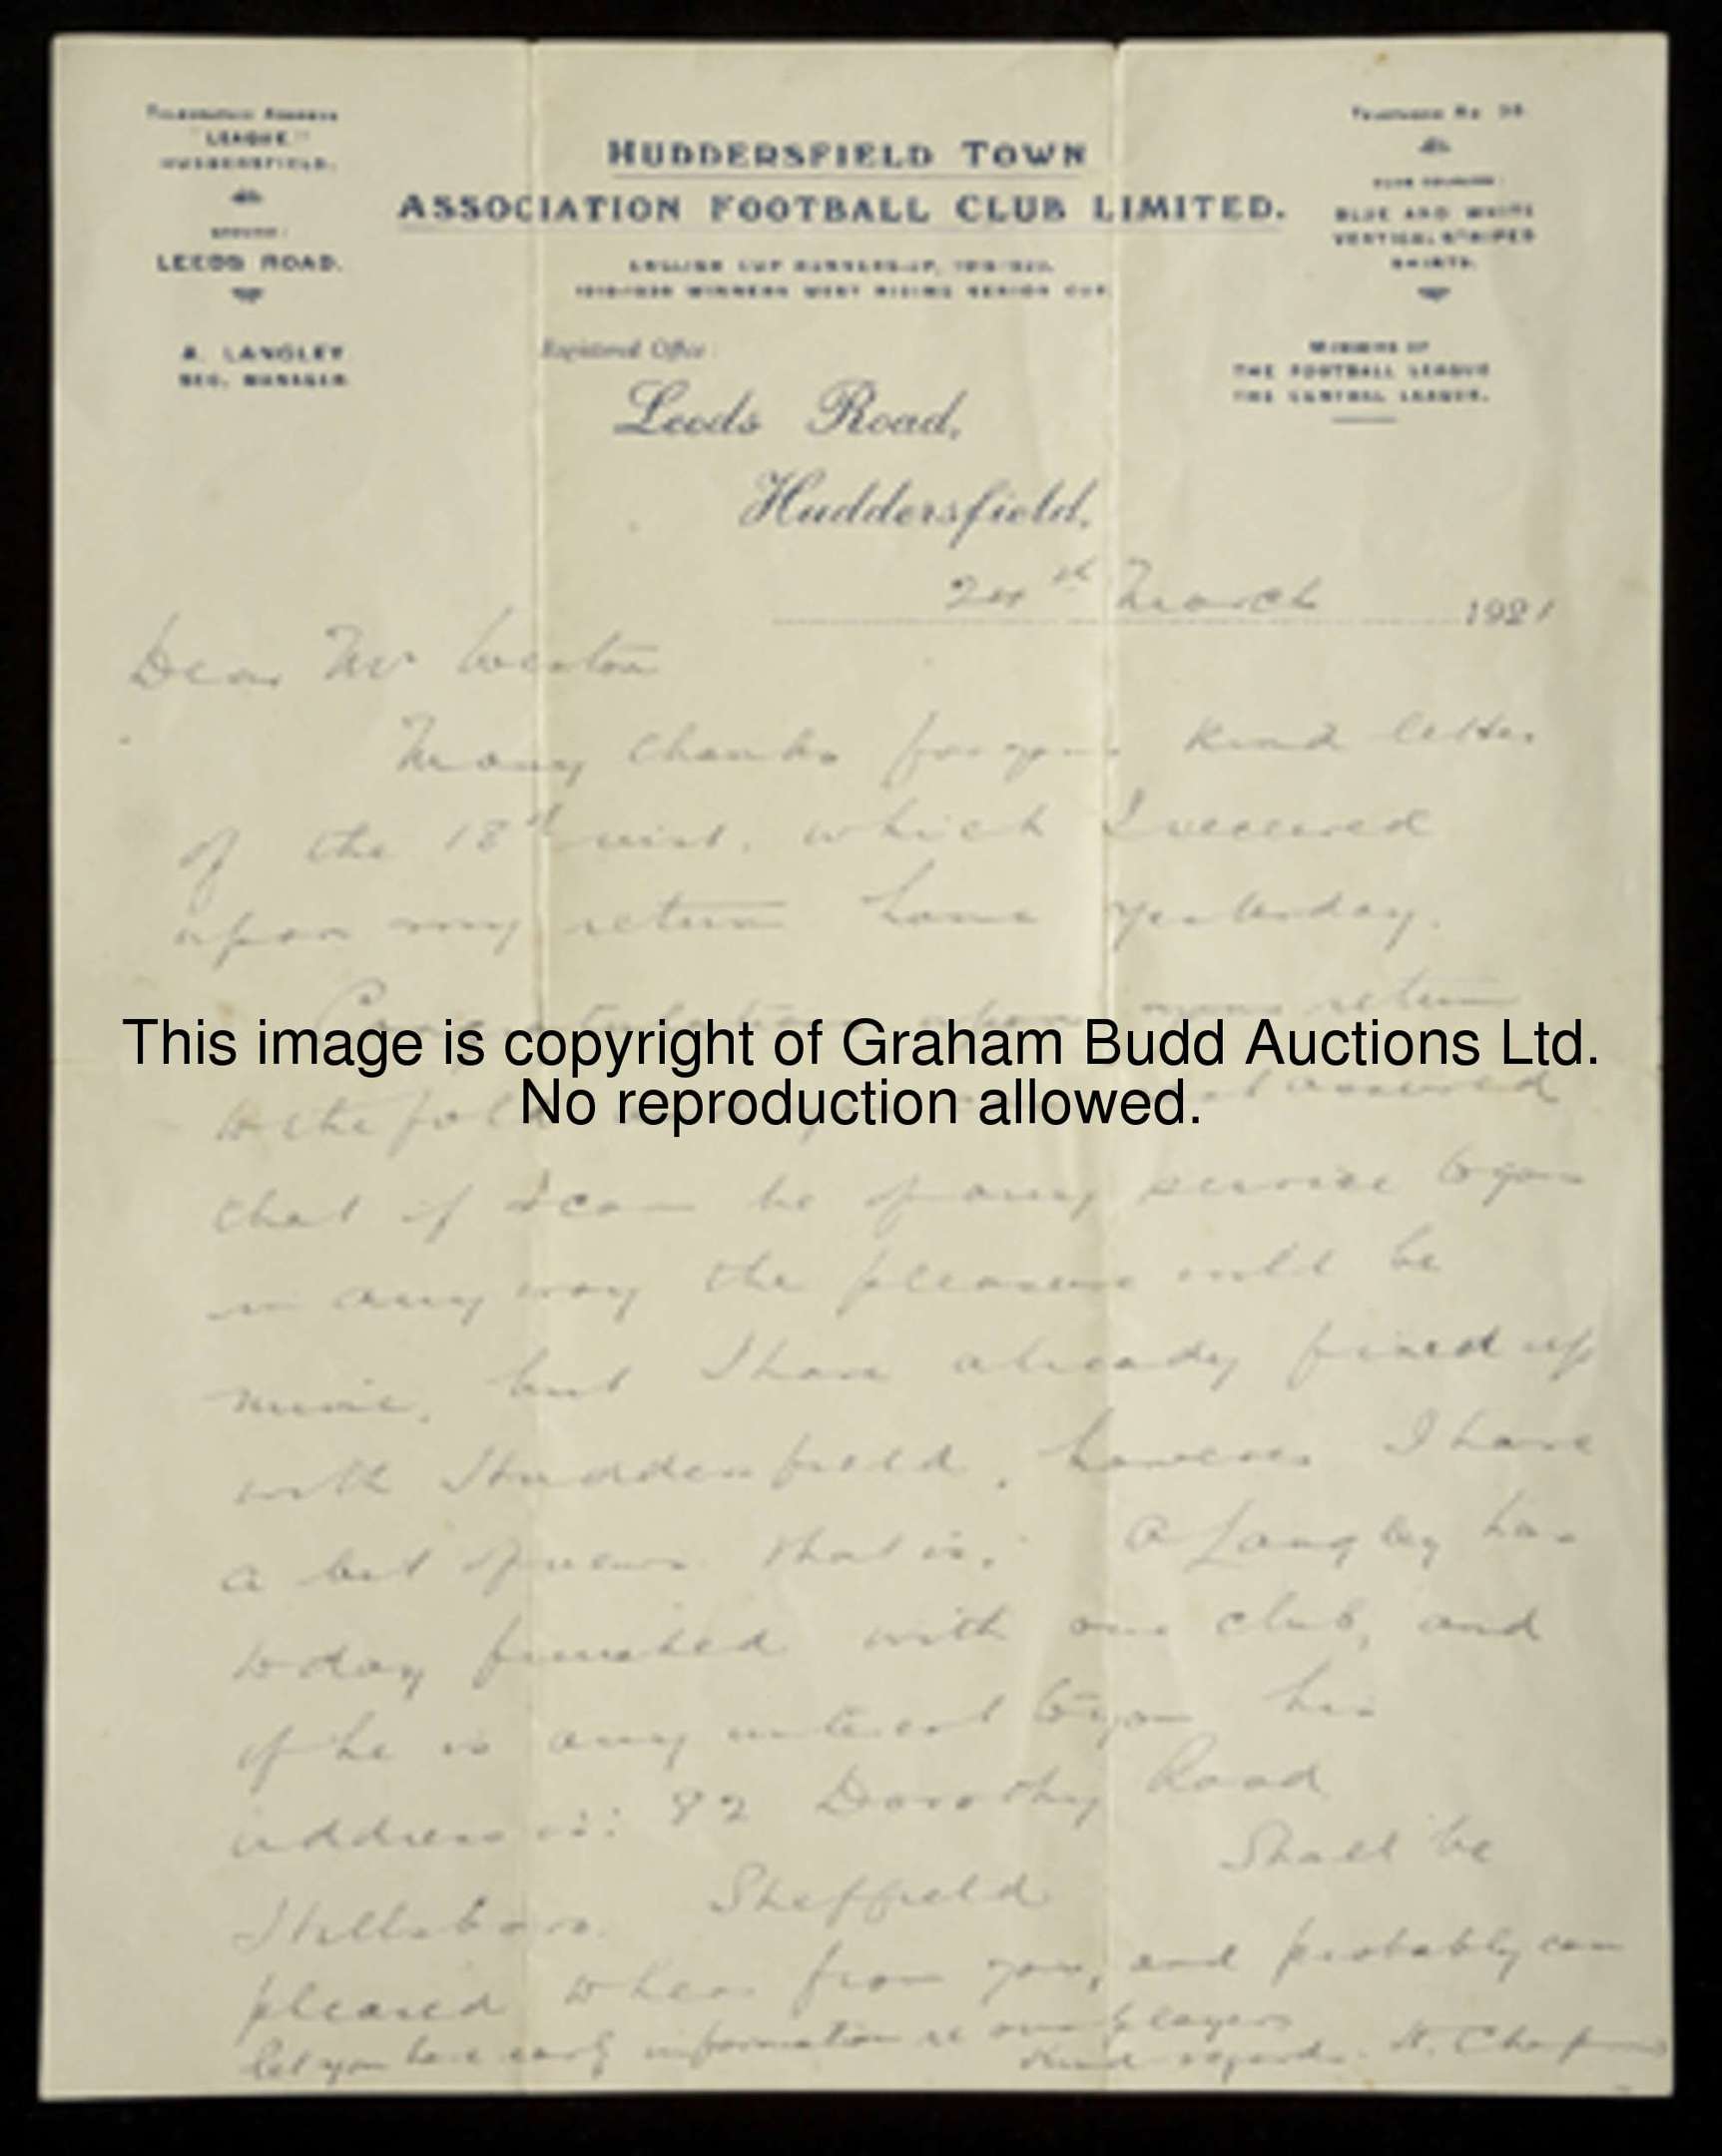 TELEGRAPHIC ADDRESS
"LEAGUE"
HUDDERSFIELD.
GROUND:
LEEDS ROAD.
A. LANGLEY
SEC. MANAGER
HUDDERSFIELD TOWN
ASSOCIATION FOOTBALL CLUB LIMITED.
ENGLISH CUP RUNNERS-UP,
WINNERS WEST RIDING SENIOR CUP.
Registered Office:
Leeds Road,
Huddersfield,
TELEPHONE No
CLUB COLOURS:
BLUE AND WHITE
VERTICAL STRIPED
SHIRTS.
MEMBERS OF
THE FOOTBALL LEAGUE
THE CENTRAL LEAGUE.
24th March 1921
Dear Mr
Many thanks for your kind letter
of the 18th inst. which I received
upon my return home yesterday.
Congratulations upon your return
This image is copyright of Graham Budd Auctions Ltd.
No reproduction allowed.
to the fold assured
that if I can be of any service to you
in any way the pleasure will be
mine, but I have already fixed up
with Huddersfield, however I have
a bit of news that is, A Langley has
today finished with our club, and
if he is any interest to you his
address is: 82 Dorothy Road
Hillsboro. Sheffield Shall be
pleased to hear from you, and probably can
let you have early information re our players
Kind regards. H. Chapman